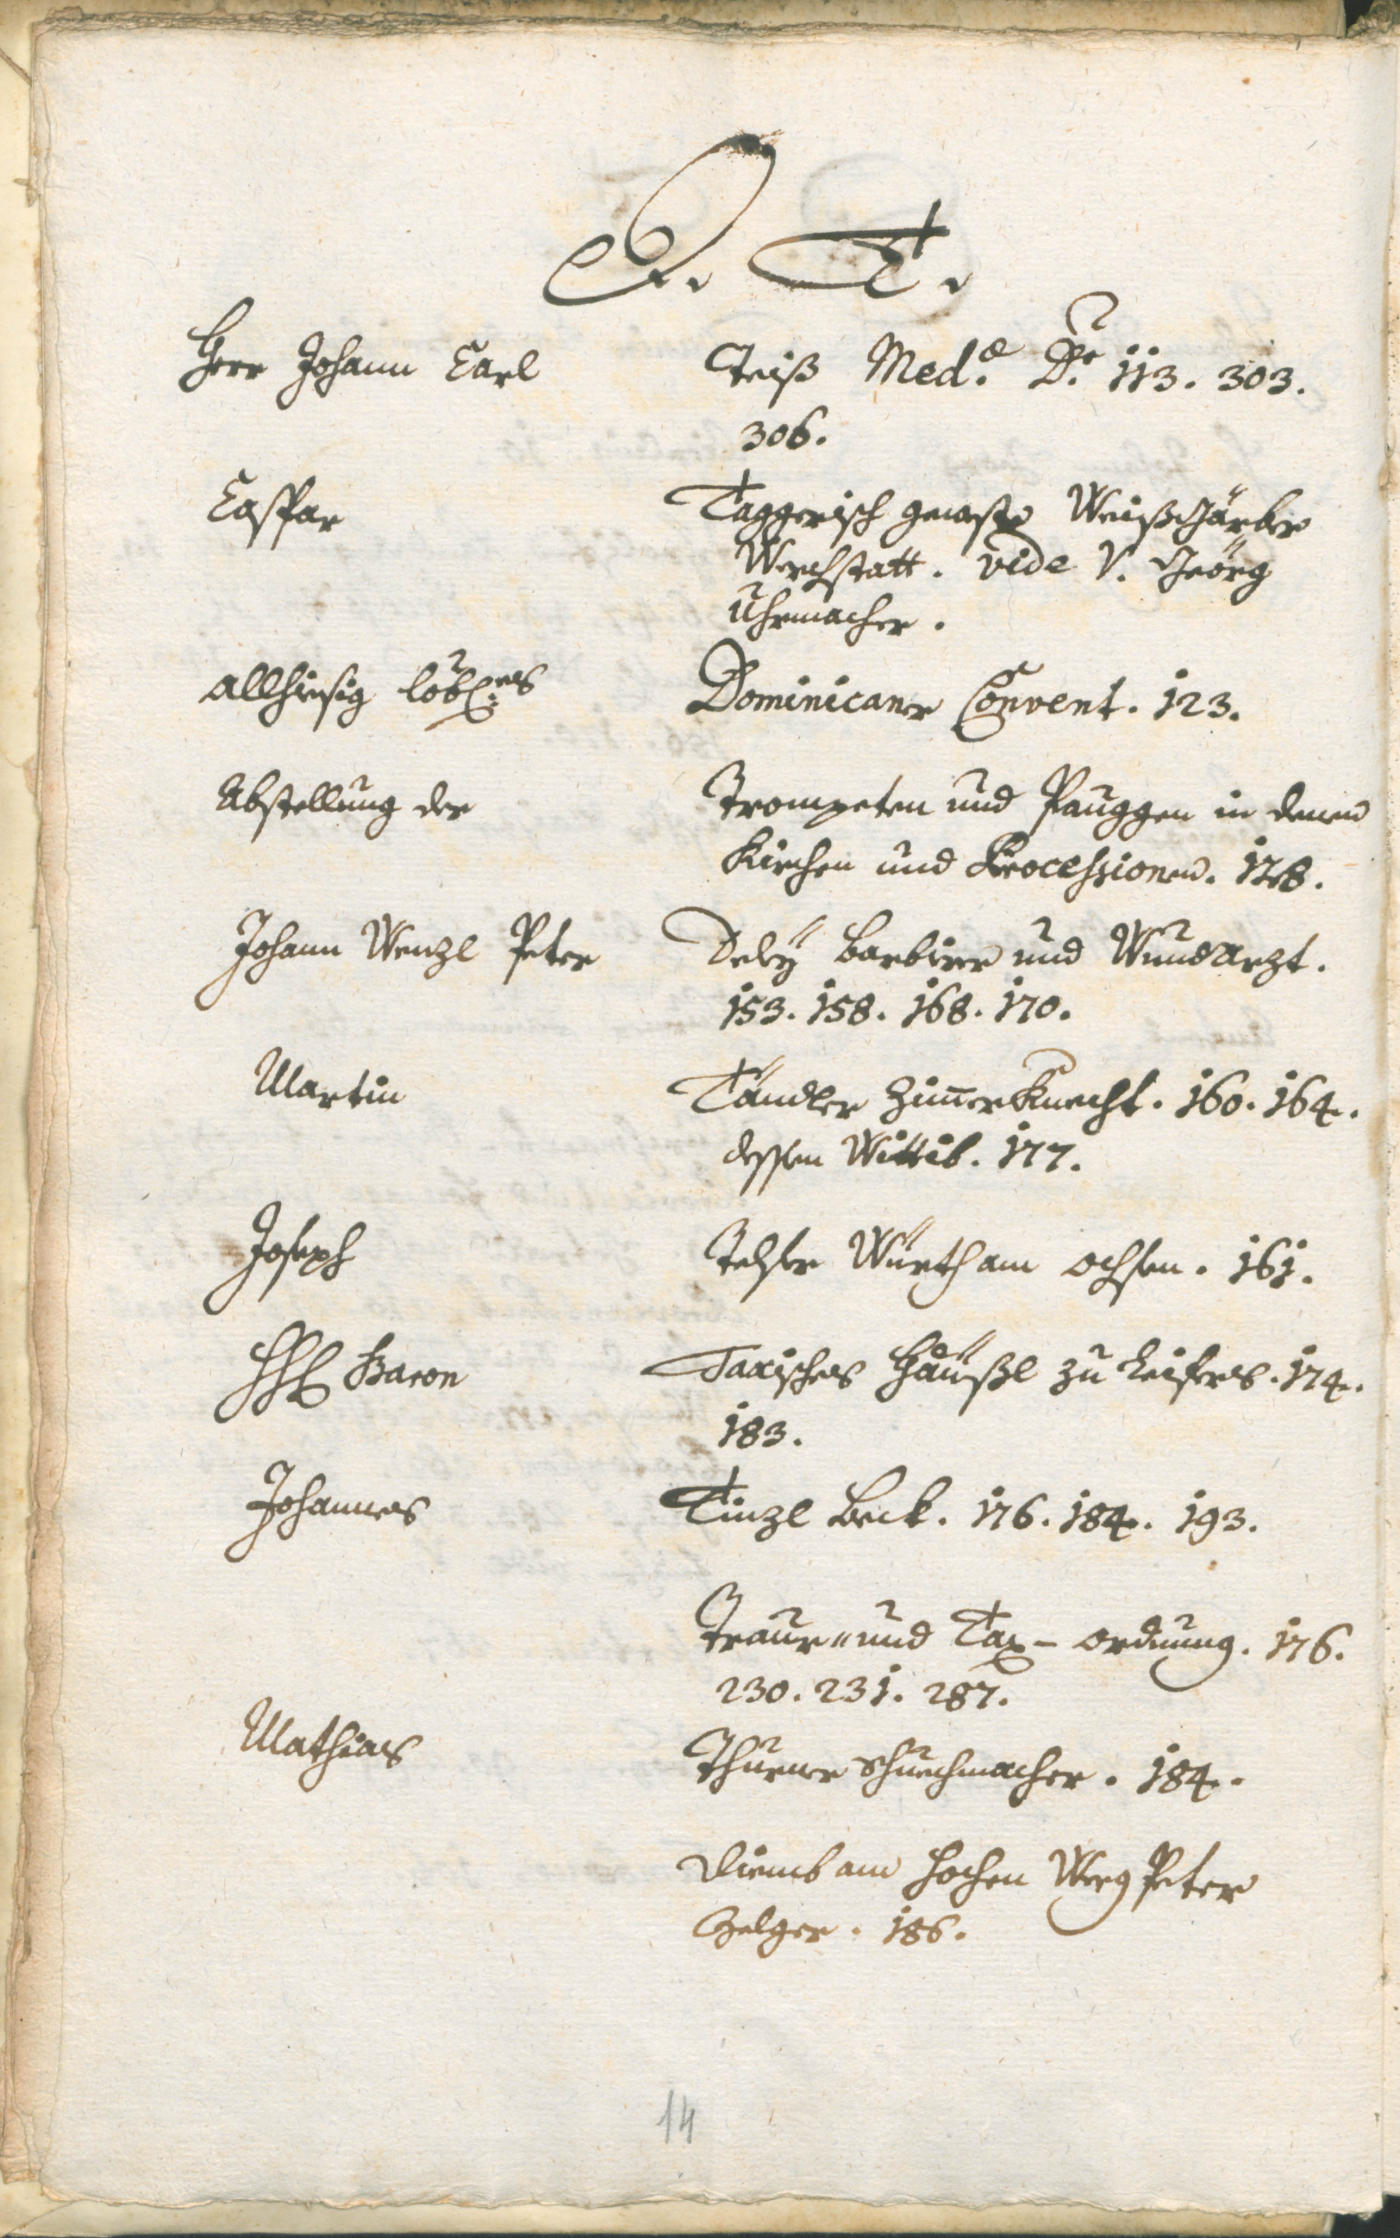 D. T.
Herr Johann Carl Theiß Med.e D.r 113. 303.
306.
Caspar Taggerisch geweste Weißgärber
Werchstatt. vide V. Geörg
Uhrmacher.
allhiesig löbl:es Dominicaner Convent. 123.
Abstellung der Trompeten und Pauggen in denen
Kirchen und Processionen. 128.
Johann Wenzl Peter Barbirer und Wundarzt.
153. 158. 168. 170.
Martin Tändler Zimerknecht. 160. 164.
dessen Wittib. 177.
Joseph Würth am Ochsen. 161.
Baron Taxisches Häußl zu Leifers. 174.
183.
Johannes Tinzl Beck. 176. 184. 193.
Traur- und Tax-Ordnung. 176.
230. 231. 287.
Mathias Thurner Schuechmacher. 184.
am hochen Weeg Peter
Zelger. 186.
14